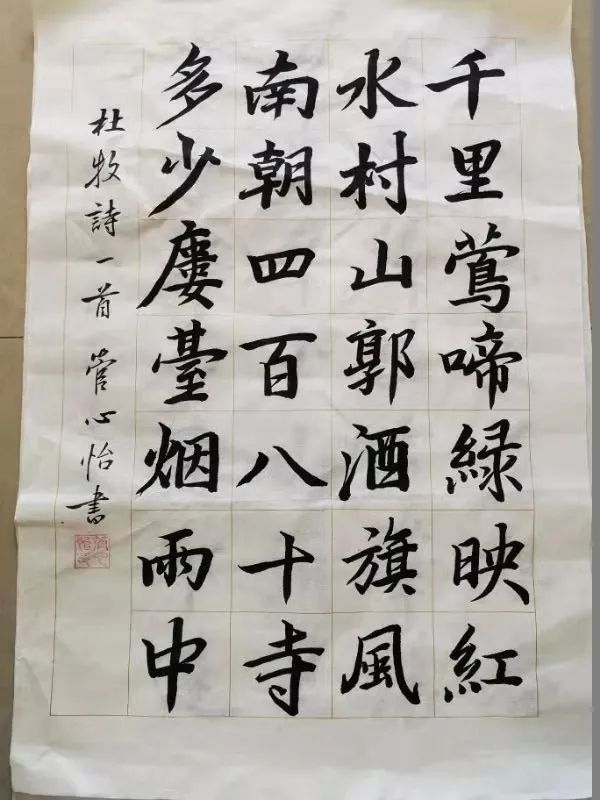 千里鶯啼緑映紅
水村山郭酒旗風
南朝四百八十寺
多少廔臺烟雨中
杜牧詩一首 管心怡書